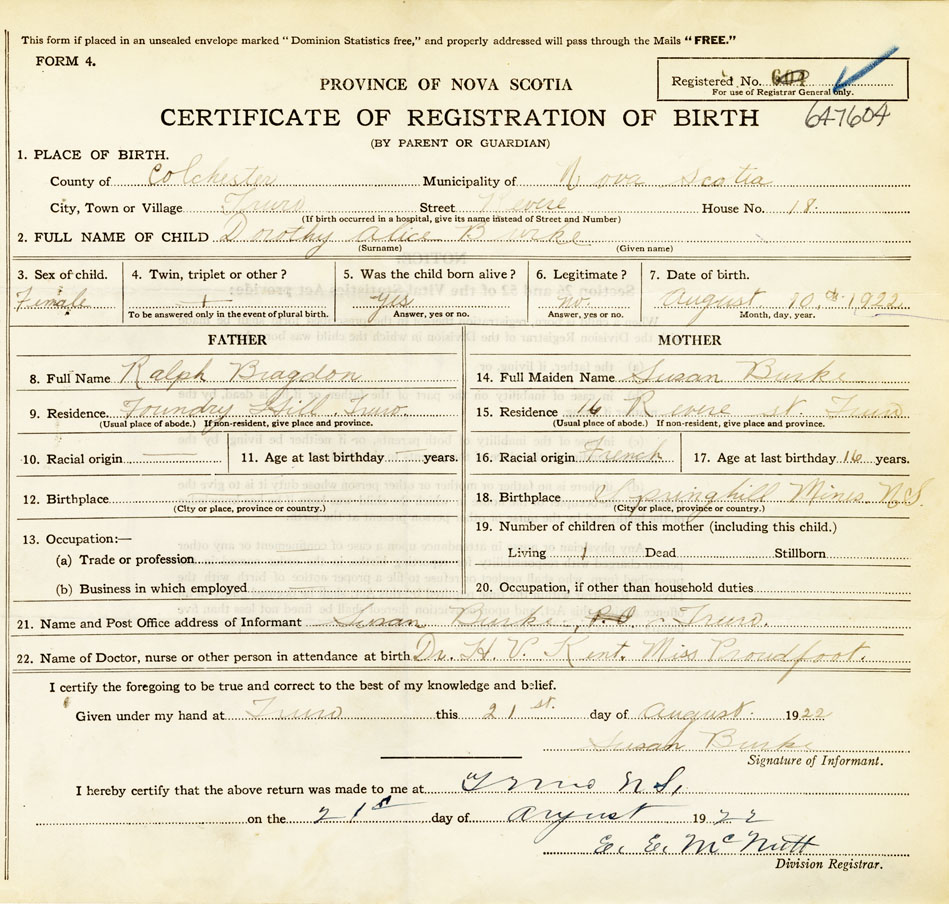 This form if placed in an unsealed envelope marked "Dominion Statistics free," and properly addressed will pass through the Mails "FREE."
FORM 4.
Registered No.
For use of Registrar General only.
647604
PROVINCE OF NOVA SCOTIA
CERTIFICATE OF REGISTRATION OF BIRTH
(BY PARENT OR GUARDIAN)
1. PLACE OF BIRTH.
County of Colchester Municipality of Nova Scotia
City, Town or Village Truro Street Revere House No. 18.
(If birth occurred in a hospital, give its name instead of Street and Number)
2. FULL NAME OF CHILD Dorothy Alice Burke
(Surname) (Given name)
3. Sex of child. 4. Twin, triplet or other? 5. Was the child born alive? 6. Legitimate? 7. Date of birth.
Female yes no. August 10 1922
To be answered only in the event of plural birth. Answer, yes or no. Answer, yes or no. Month, day, year.
FATHER MOTHER
8. Full Name Ralph Bragdon
14. Full Maiden Name Susan Burke
9. Residence. Foundry Hill, Truro
(Usual place of abode.) If non-resident, give place and province.
15. Residence 16 Revere st. Truro
(Usual place of abode.) If non-resident, give place and province.
10. Racial origin 11. Age at last birthday years.
16. Racial origin French 17. Age at last birthday 16 years.
12. Birthplace
(City or place, province or country.)
18. Birthplace Springhill Mines N.S.
(City or place, province or country.)
13. Occupation:—
(a) Trade or profession
(b) Business in which employed
19. Number of children of this mother (including this child.)
Living 1 Dead Stillborn
20. Occupation, if other than household duties
21. Name and Post Office address of Informant Susan Burke, Truro.
22. Name of Doctor, nurse or other person in attendance at birth Dr. H. V. Kent. Miss Proudfoot.
I certify the foregoing to be true and correct to the best of my knowledge and belief.
Given under my hand at Truro this 21st. day of August. 1922
Susan Burke
Signature of Informant.
I hereby certify that the above return was made to me at Truro N.S.
on the 21st day of August 1922
E. E. McNutt
Division Registrar.